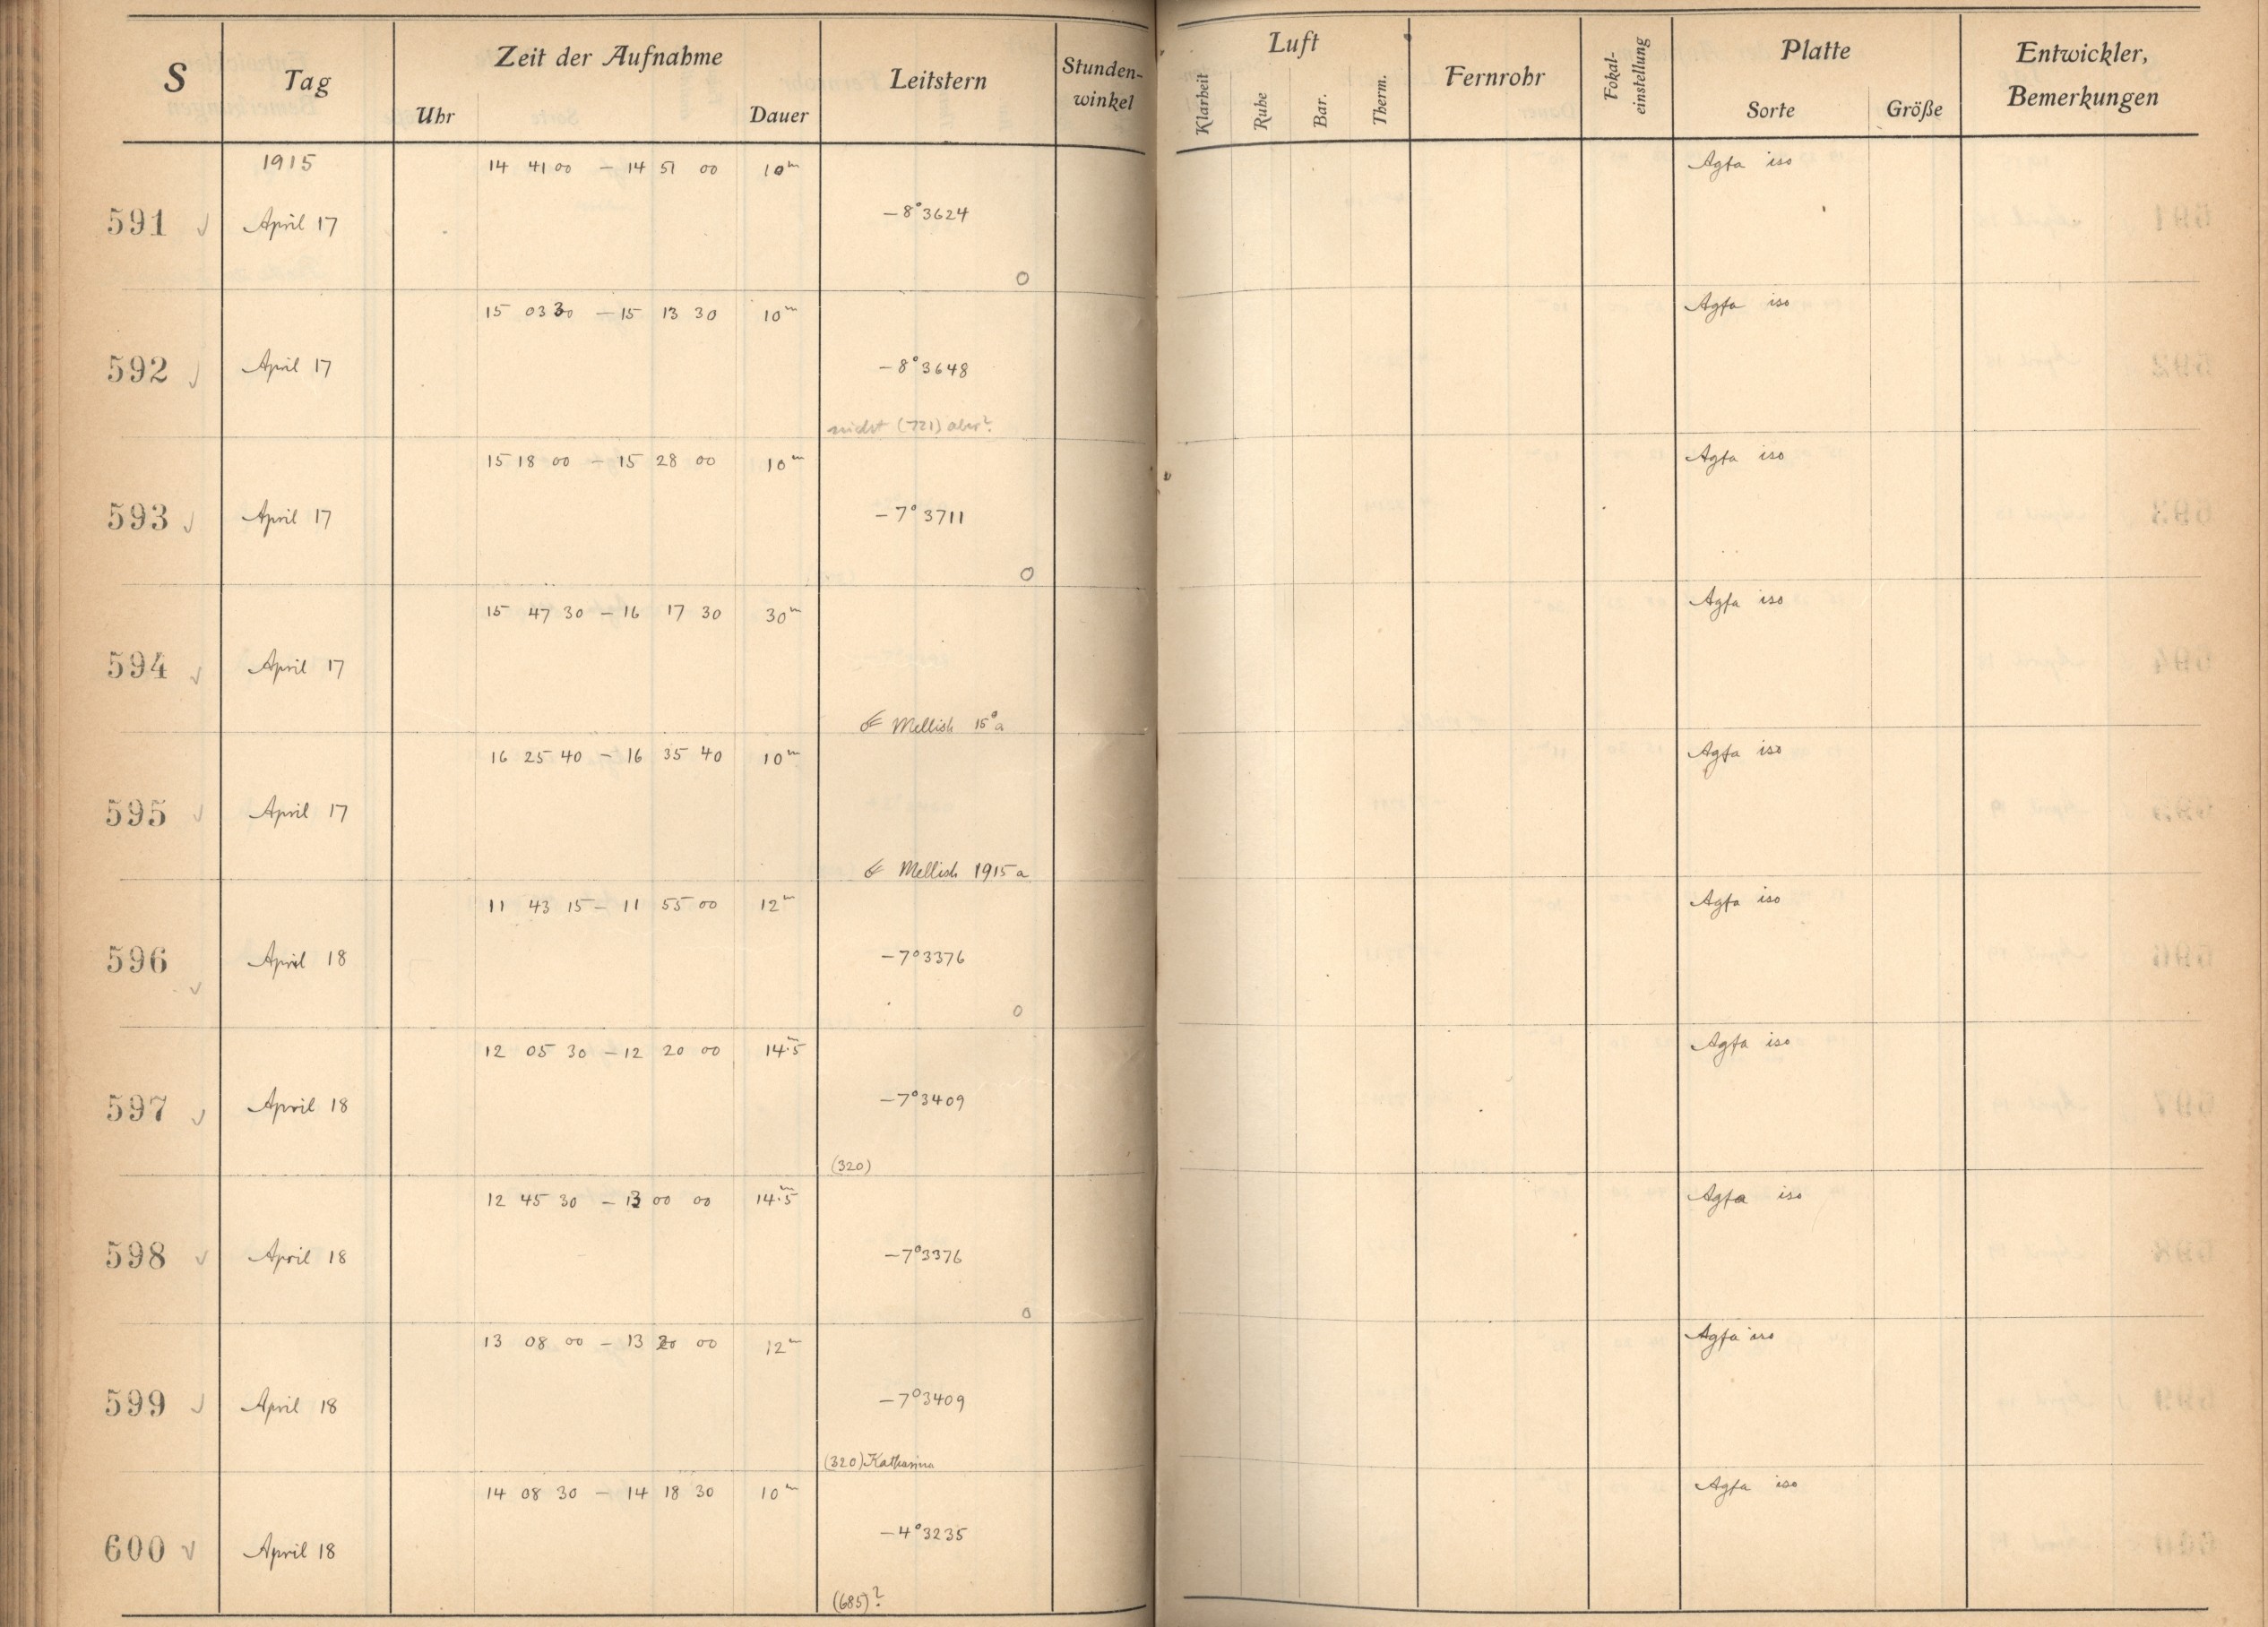 S Tag Zeit der Aufnahme Leitstern Stunden-winkel Luft Fernrohr Fokal-einstellung Platte Entwickler, Bemerkungen
Uhr Dauer Klarheit Ruhe Bar. Therm. Sorte Größe
1915 14 41 00 – 14 51 00 10m Agfa iso
591 April 17 –8°3624
15 03 30 – 15 13 30 10m Agfa iso
592 April 17 –8°3648
nicht (721) aber?
15 18 00 – 15 28 00 10m Agfa iso
593 April 17 –7°3711
15 47 30 – 16 17 30 30m Agfa iso
594 April 17
Mellish 15 a
16 25 40 – 16 35 40 10m Agfa iso
595 April 17
Mellish 1915 a
11 43 15 – 11 55 00 12m Agfa iso
596 April 18 –7°3376
12 05 30 – 12 20 00 14.m5 Agfa iso
597 April 18 –7°3409
(320)
12 45 30 – 13 00 00 14.m5 Agfa iso
598 April 18 –7°3376
13 08 00 – 13 20 00 12m Agfa iso
599 April 18 –7°3409
(320) Katharina
14 08 30 – 14 18 30 10m Agfa iso
600 April 18 –4°3235
(685)?